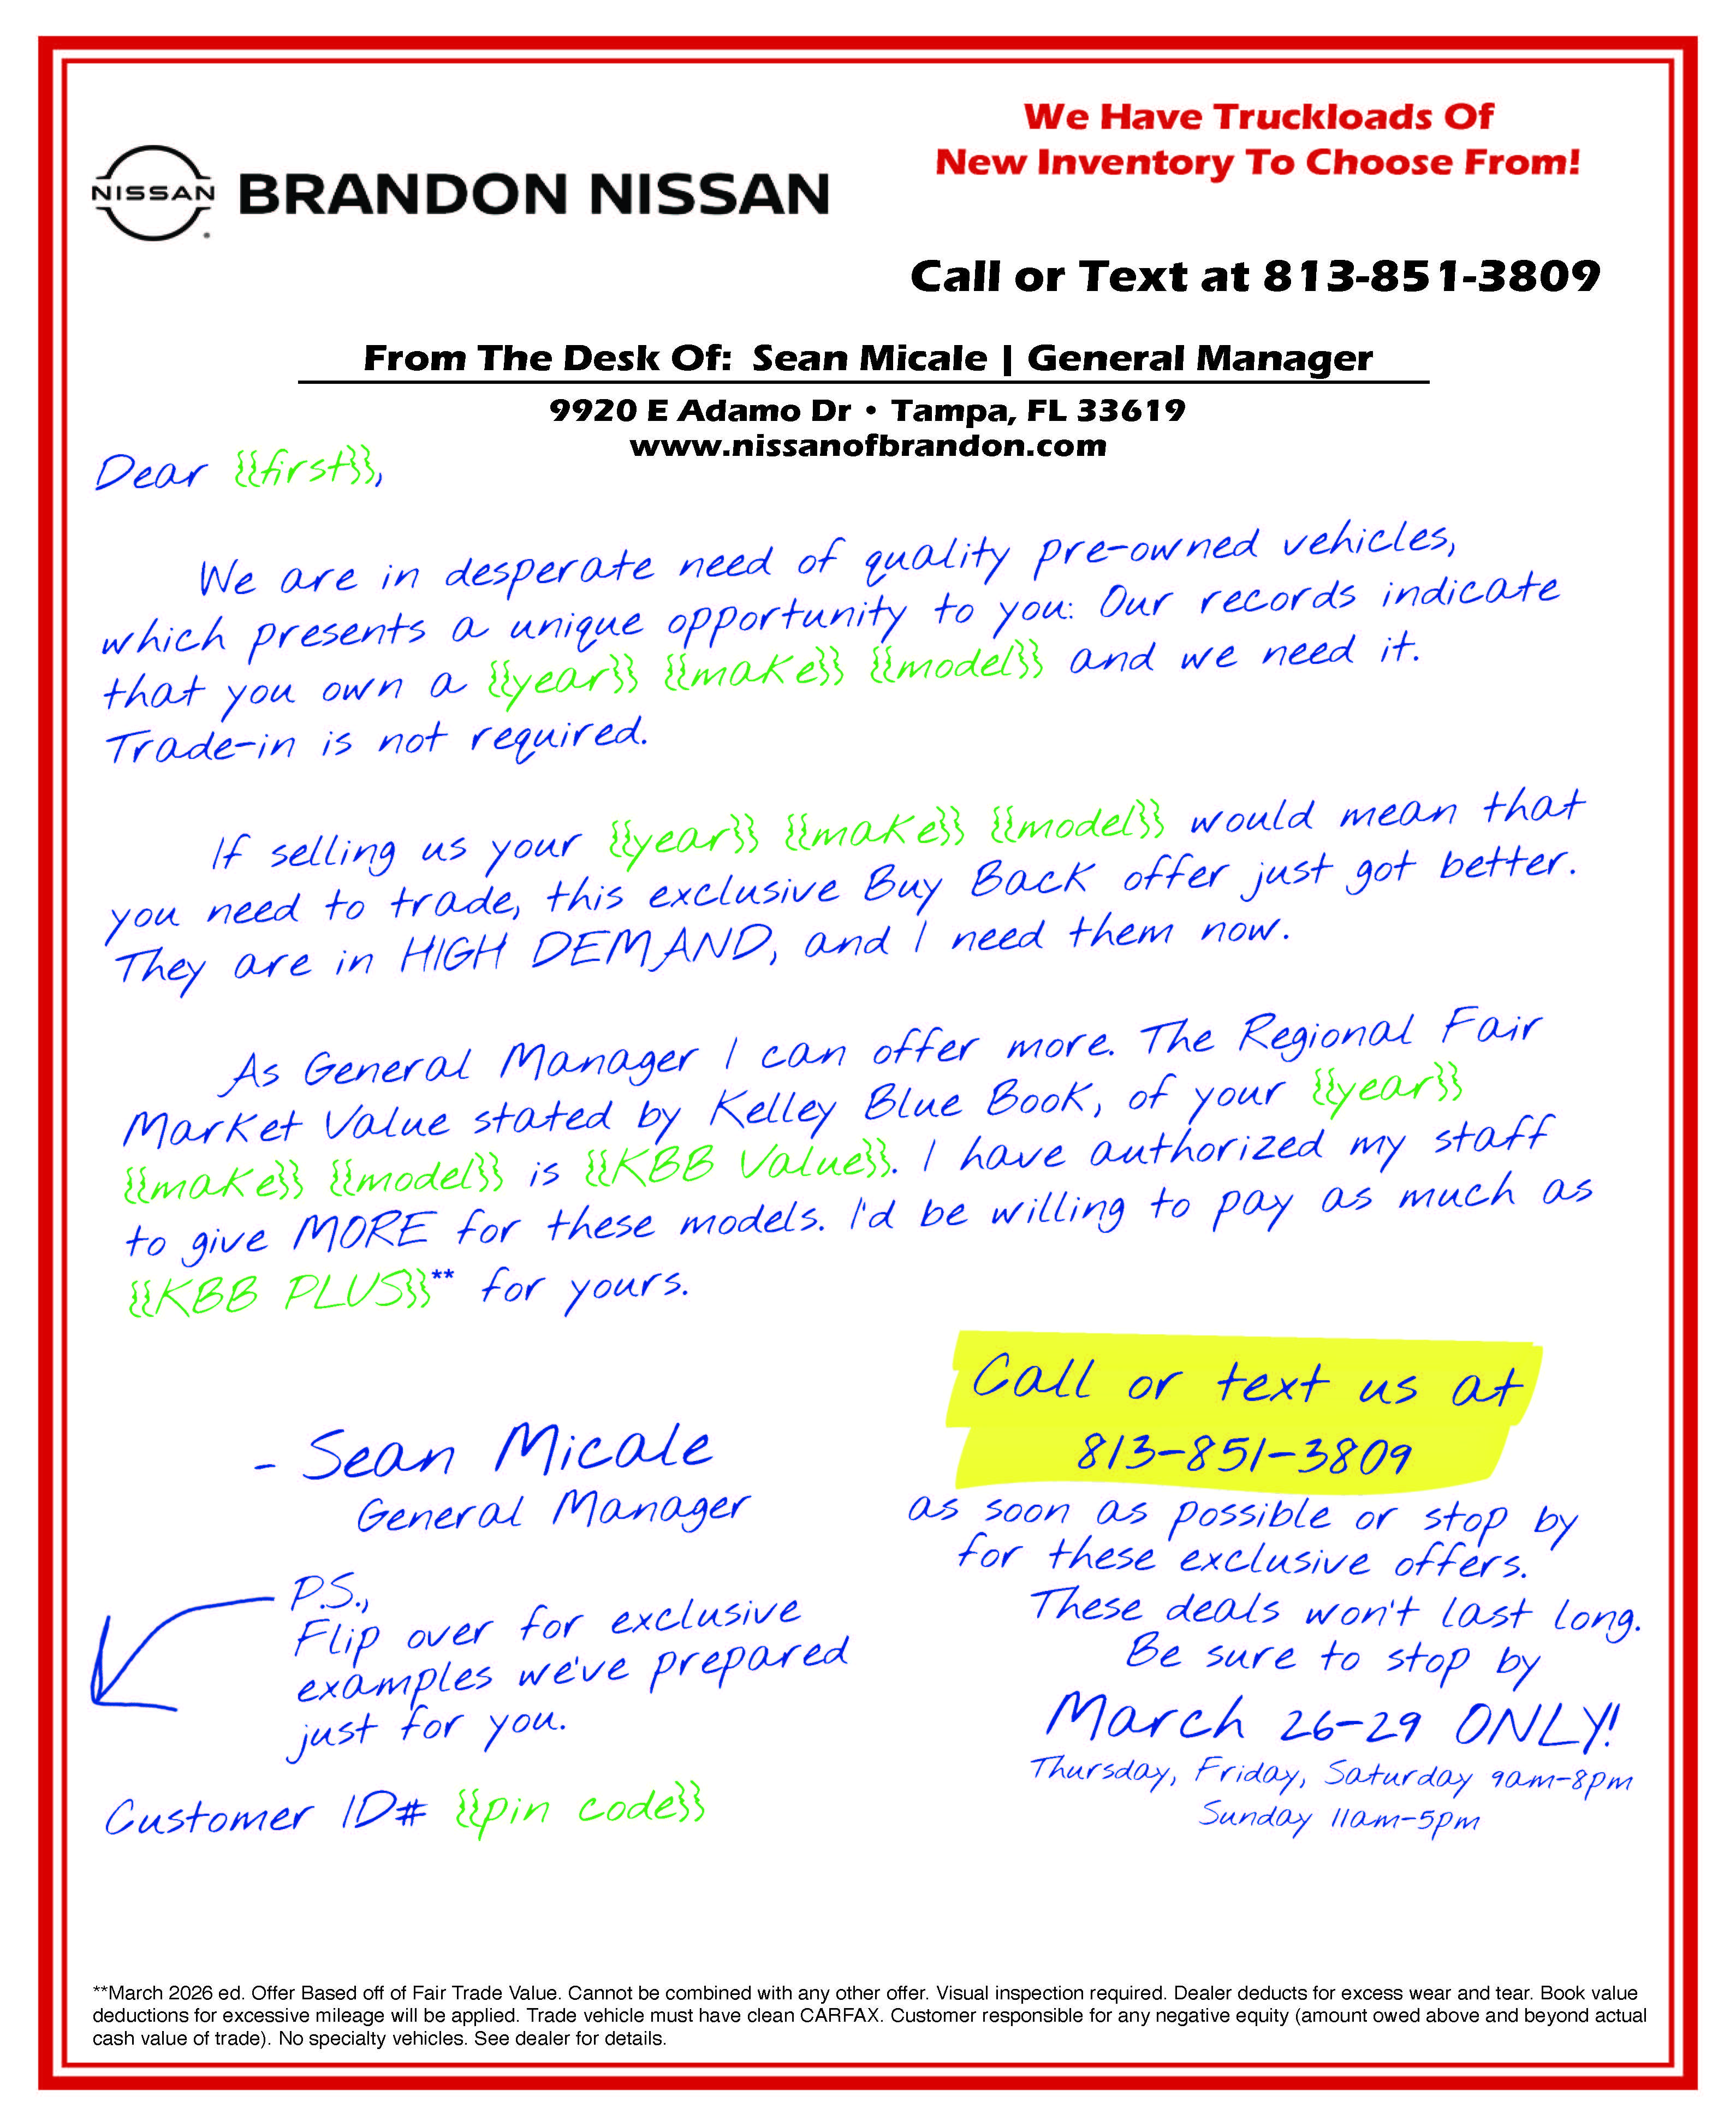 We Have Truckloads Of
New Inventory To Choose From!
NISSAN
BRANDON NISSAN
Call or Text at 813-851-3809
From The Desk Of: Sean Micale | General Manager
9920 E Adamo Dr • Tampa, FL 33619
www.nissanofbrandon.com
Dear {{first}},
We are in desperate need of quality pre-owned vehicles,
which presents a unique opportunity to you: Our records indicate
that you own a {{year}} {{make}} {{model}} and we need it.
Trade-in is not required.
If selling us your {{year}} {{make}} {{model}} would mean that
you need to trade, this exclusive Buy Back offer just got better.
They are in HIGH DEMAND, and I need them now.
As General Manager I can offer more. The Regional Fair
Market Value stated by Kelley Blue Book, of your {{year}}
{{make}} {{model}} is {{KBB Value}}. I have authorized my staff
to give MORE for these models. I'd be willing to pay as much as
{{KBB PLUS}}** for yours.
- Sean Micale
General Manager
P.S.,
Flip over for exclusive
examples we've prepared
just for you.
Customer ID# {{pin code}}
Call or text us at
813-851-3809
as soon as possible or stop by
for these exclusive offers.
These deals won't last long.
Be sure to stop by
March 26-29 ONLY!
Thursday, Friday, Saturday 9am-8pm
Sunday 11am-5pm
**March 2026 ed. Offer Based off of Fair Trade Value. Cannot be combined with any other offer. Visual inspection required. Dealer deducts for excess wear and tear. Book value
deductions for excessive mileage will be applied. Trade vehicle must have clean CARFAX. Customer responsible for any negative equity (amount owed above and beyond actual
cash value of trade). No specialty vehicles. See dealer for details.